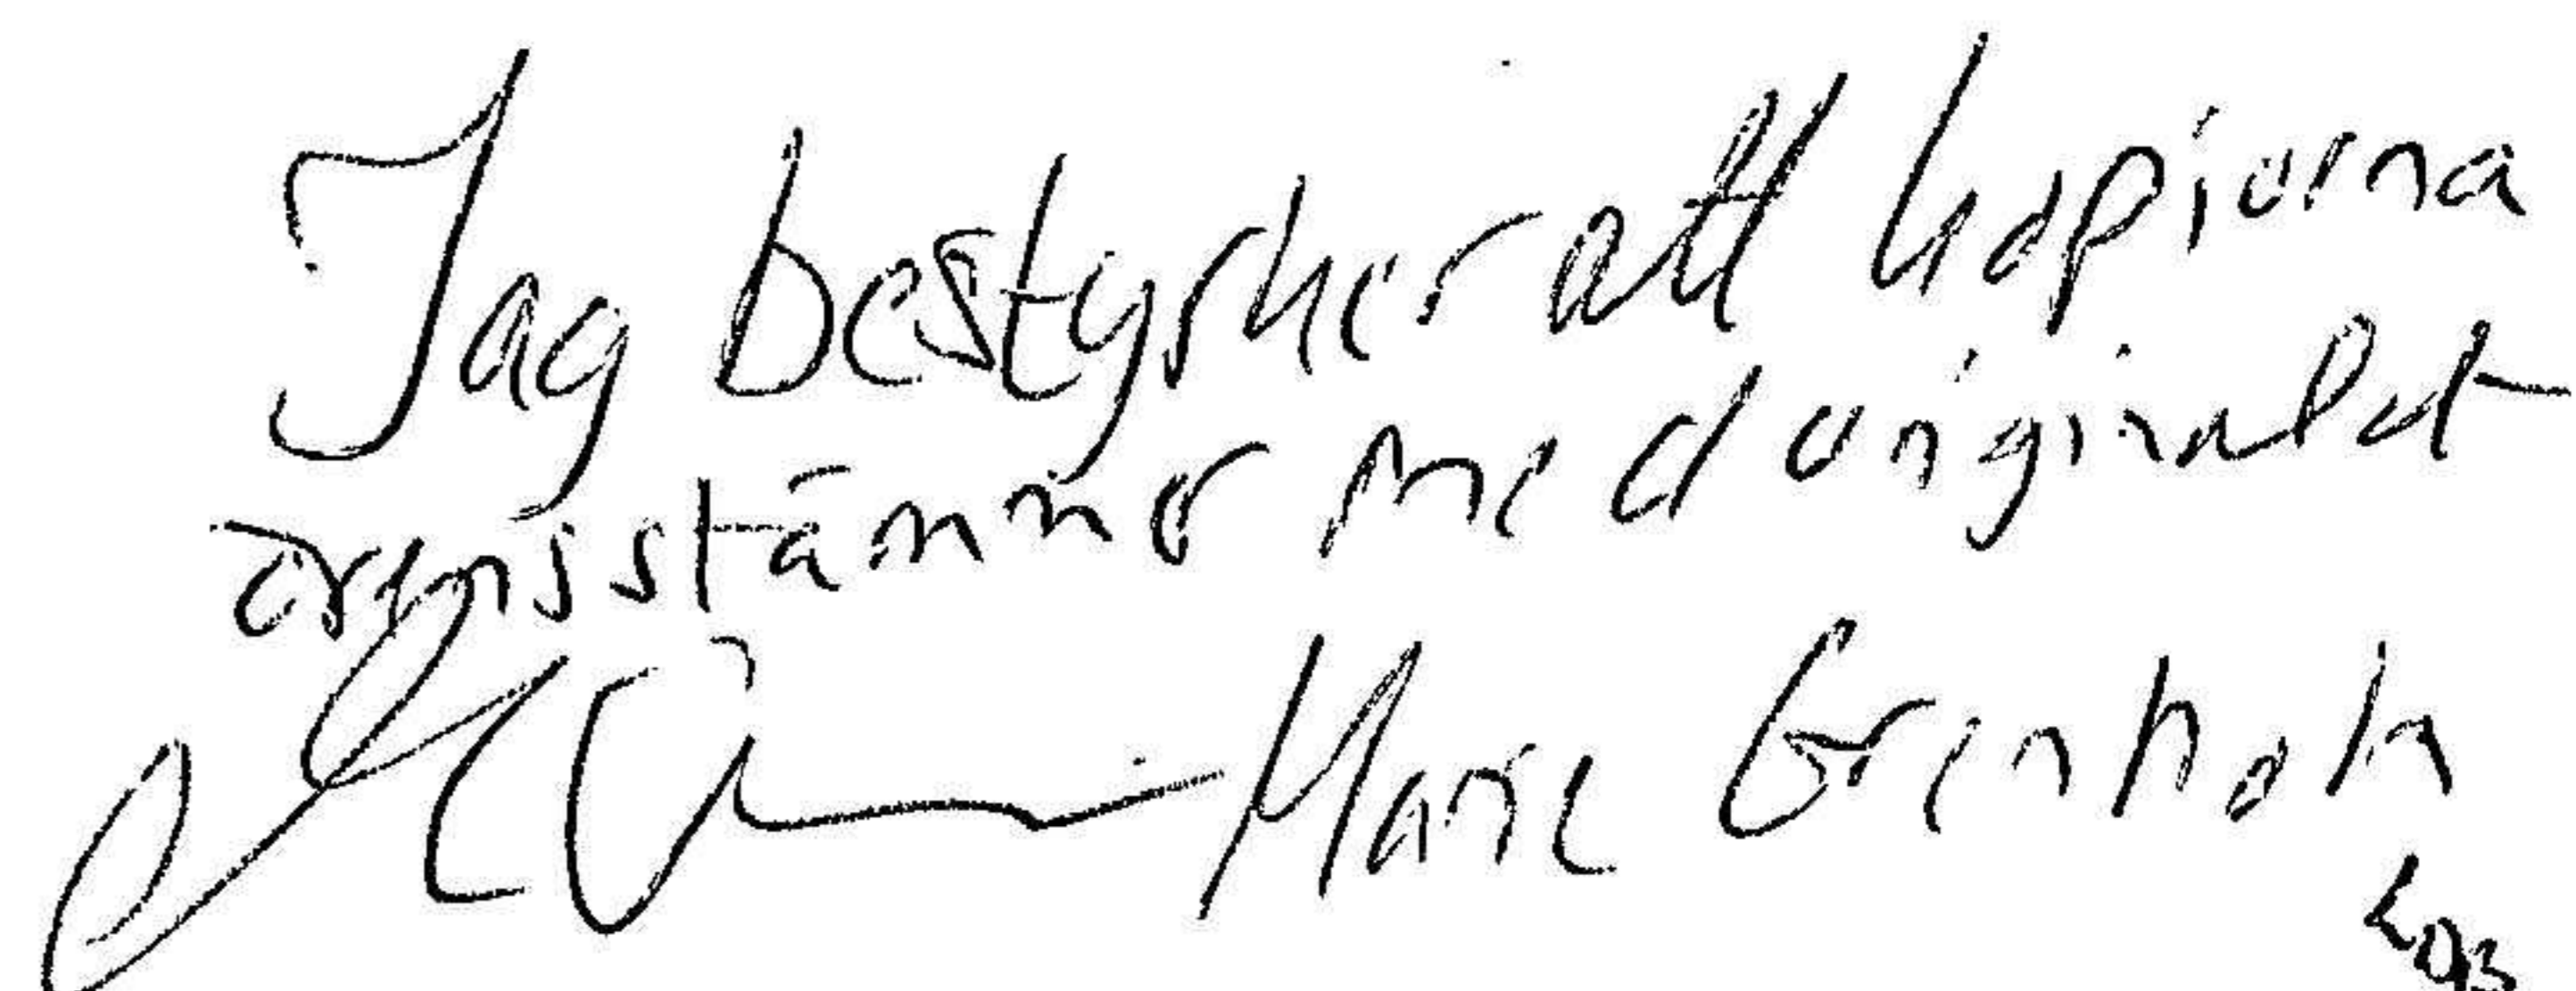 Jag bestyrker att kopiorna
överensstämmer med originalet
Marie Grenholm